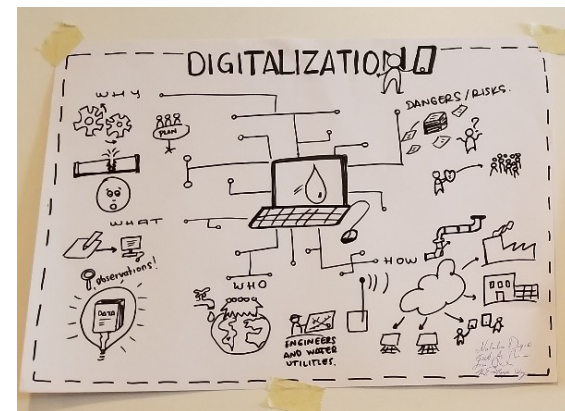 DIGITALIZATION
WHY
PLAN
DANGERS/RISKS.
WHAT
observations!
DATA
WHO
ENGINEERS
AND WATER
UTILITIES.
HOW